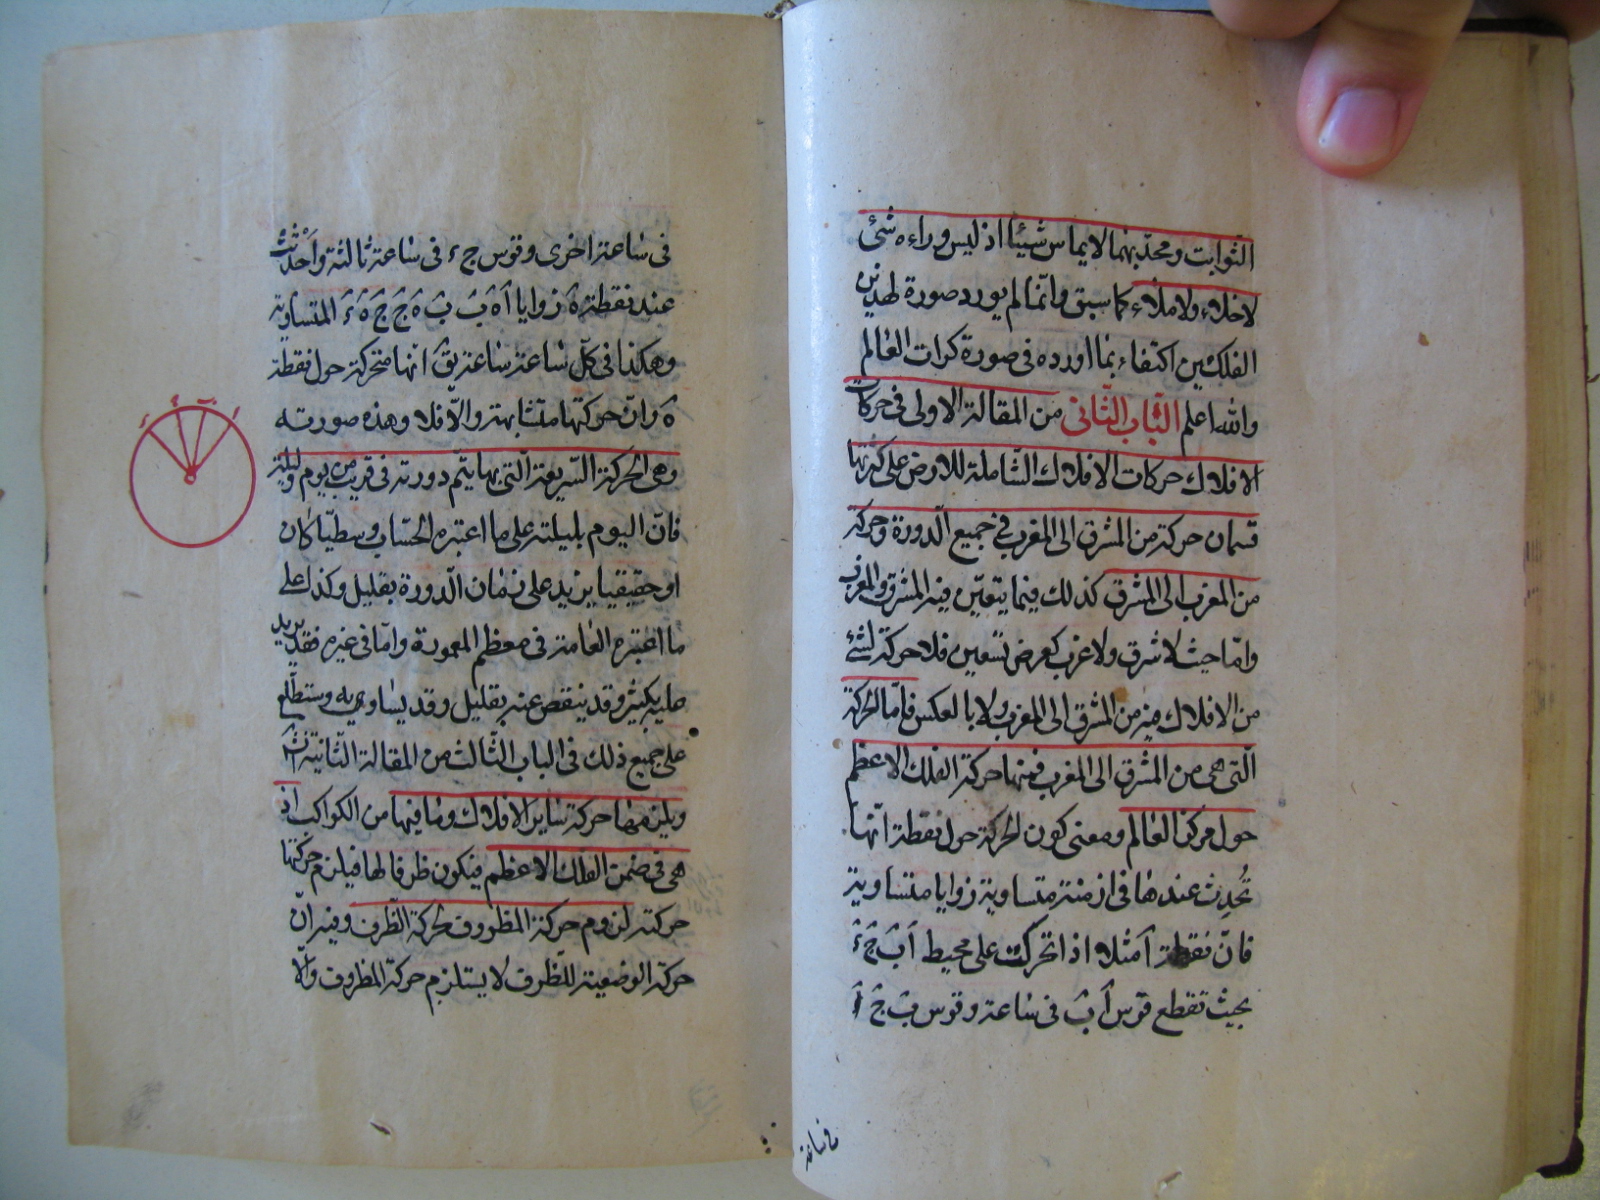 الثوابت ومحدبهما لا يماس شيئا اذ ليس وراءه شئ
لا خلاء ولا ملاء كما سبق وانما لم يورد صورة لهذين
الفلكين اكتفاء بما اورده فى صورة كرات العالم
والله اعلم الباب الثانى من المقالة الاولى فى حركات
الافلاك حركات الافلاك الشاملة للارض على كثرتها
قسمان حركة من المشرق الى المغرب فى جميع الدورة وحركة
من المغرب الى المشرق كذلك فيما يتعين فيه المشرق والمغرب
واما حيث لا شرق ولا غرب كعرض تسعين فلا حركة لشئ
من الافلاك فيه من المشرق الى المغرب ولا بالعكس فاما الحركة
التى هى من المشرق الى المغرب فمنها حركة الفلك الاعظم
حول مركز العالم ومعنى كون الحركة حول نقطة انها
تُحدِث عندها فى ازمنة متساوية زوايا متساوية
فان نقطة آ مثلا اذا تحركت على محيط آ ب ج ء
بحيث تقطع قوس آ ب فى ساعة وقوس ب ج
فى ساعة
فى ساعة اخرى وقوس ج ء فى ساعة ثالثة واَحْدَثَتْ
عند نقطة ه زوايا آ ه ب ب ه ج ج ه ء المتساوية
وهكذا فى كل ساعة ساعة يق انها متحركة حول نقطة
ه وان حركتها متشابهة والا فلا وهذه صورته
وهى الحركة السريعة التى بها يتم دورته فى قريب من يوم وليلة
فان اليوم بليلته على ما اعتبره الحساب وسطيا كان
او حقيقيا يزيد على زمان الدورة بقليل وكذا على
ما اعتبره العامة فى معظم المعمورة واما فى غيره فقد يزيد
عليه بكثير وقد ينقص عنه بقليل وقد يساويه وستطلع
على جميع ذلك فى الباب الثالث من المقالة الثانية
ويلزمها حركة سائر الافلاك وما فيها من الكواكب اذ
هى فى ضمن الفلك الاعظم فيكون ظرفا لها فيلزم حركتها
حركته لزوم حركة المظروف لحركة الظرف وفيه ان
حركة الوضعية للظرف لا يستلزم حركة المظروف والا